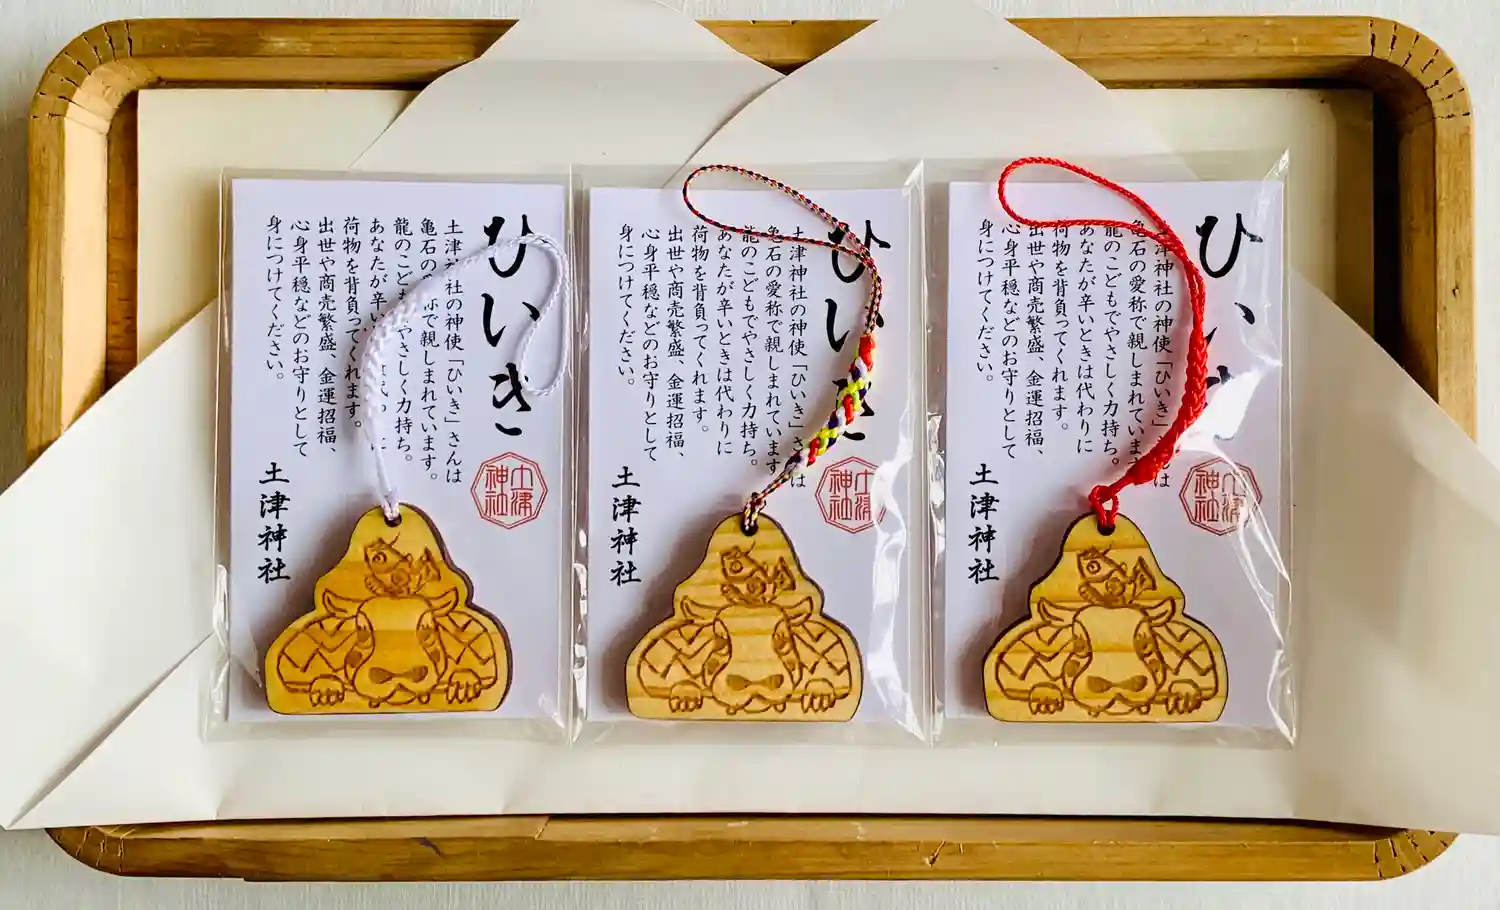 ひいき
土津神社の神使「ひいき」さんは
亀石の愛称で親しまれています。
龍のこどもでやさしく力持ち。
あなたが辛いときは代わりに
荷物を背負ってくれます。
出世や商売繁盛、金運招福、
心身平穏などのお守りとして
身につけてください。
土津神社
土津神社
ひいき
土津神社の神使「ひいき」さんは
亀石の愛称で親しまれています。
龍のこどもでやさしく力持ち。
あなたが辛いときは代わりに
荷物を背負ってくれます。
出世や商売繁盛、金運招福、
心身平穏などのお守りとして
身につけてください。
土津神社
土津神社
ひいき
土津神社の神使「ひいき」さんは
亀石の愛称で親しまれています。
龍のこどもでやさしく力持ち。
あなたが辛いときは代わりに
荷物を背負ってくれます。
出世や商売繁盛、金運招福、
心身平穏などのお守りとして
身につけてください。
土津神社
土津神社